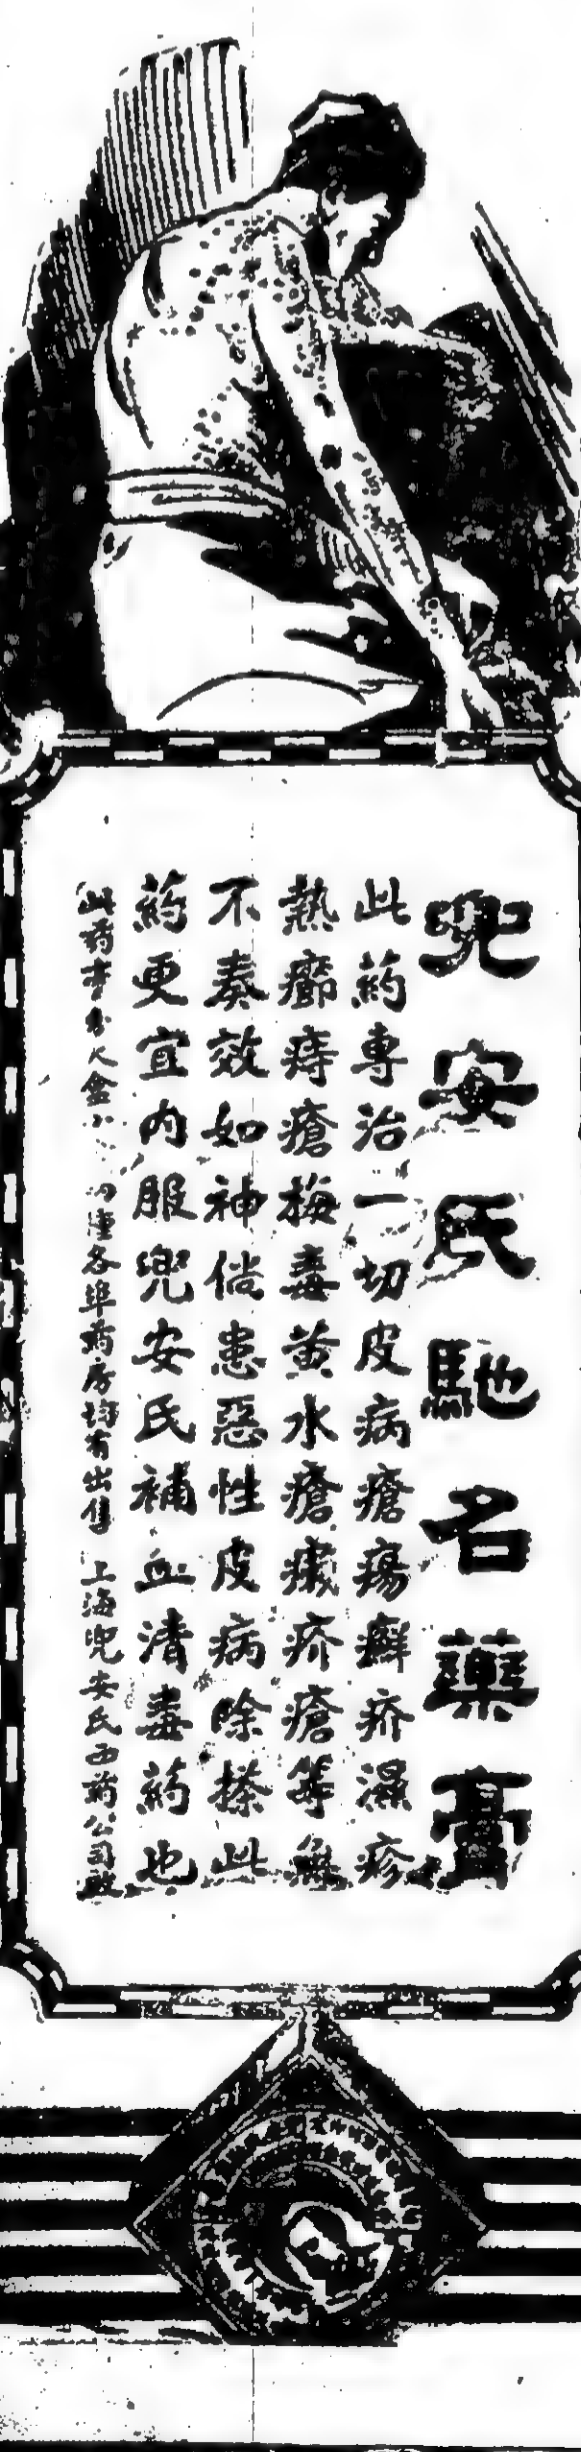 兜安氏馳名藥膏
此药專治一切皮病瘡瘍癬疥濕疹
熱癤痔瘡梅毒黄水瘡癩疥瘡等無
不奏效如神倘患惡性皮病除搽此
药更宜内服兜安氏補血清毒药也
此药膏分大盒小 各埠药房均有出售 上海兜安氏西药公司啟